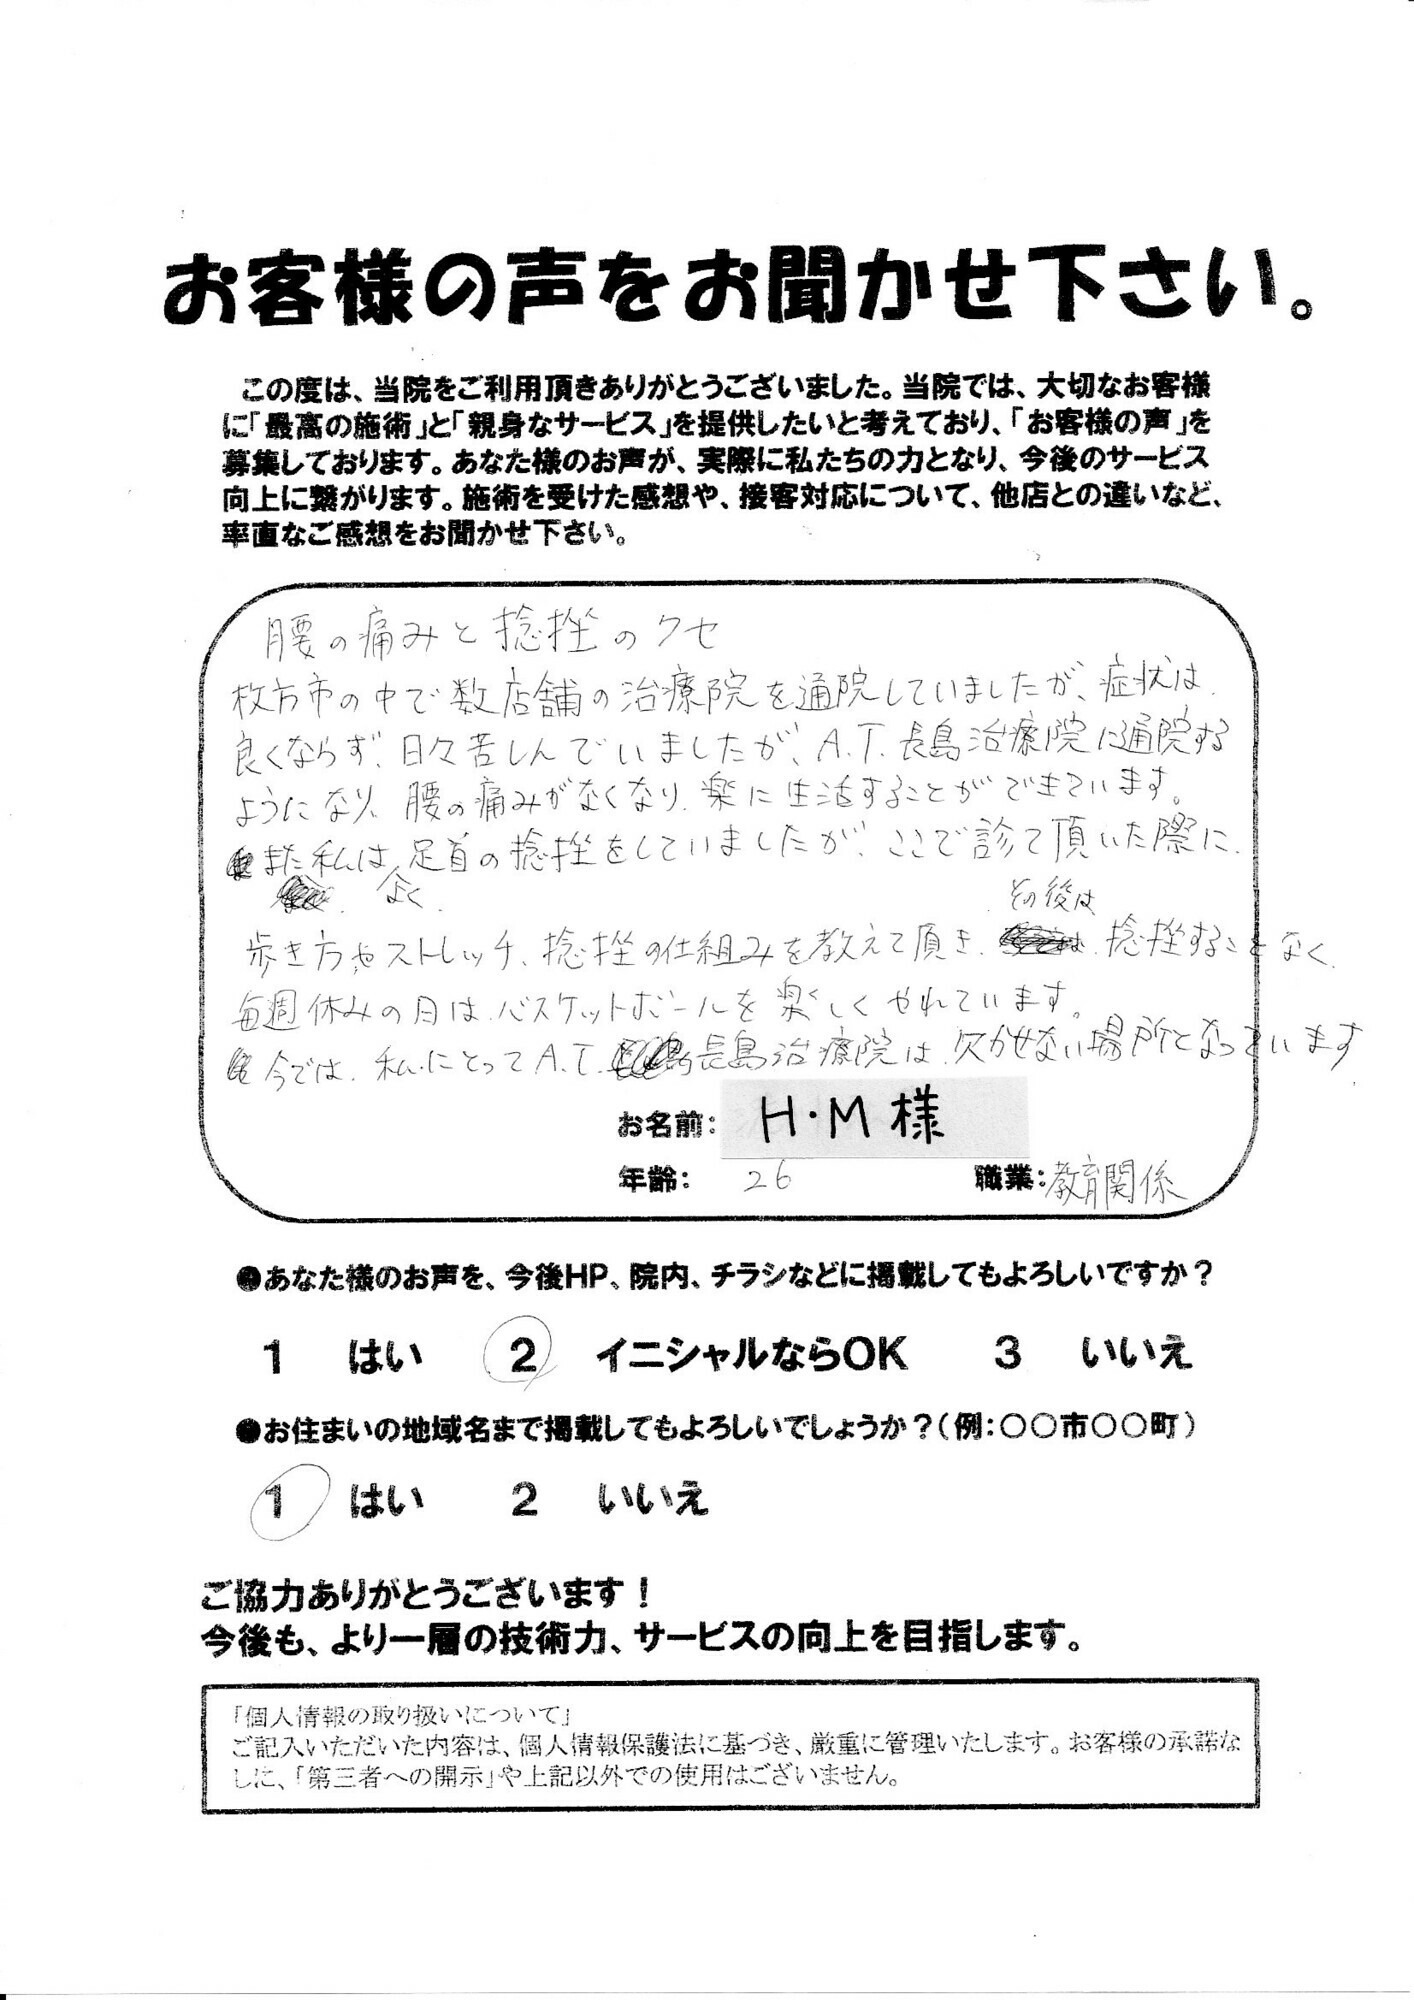 お客様の声をお聞かせ下さい。
この度は、当院をご利用頂きありがとうございました。当院では、大切なお客様
に「最高の施術」と「親身なサービス」を提供したいと考えており、「お客様の声」を
募集しております。あなた様のお声が、実際に私たちの力となり、今後のサービス
向上に繋がります。施術を受けた感想や、接客対応について、他店との違いなど、
率直なご感想をお聞かせ下さい。
腰の痛みと捻挫のクセ
枚方市の中で数店舗の治療院を通院していましたが、症状は
良くならず、日々苦しんでいましたが、A.T.長島治療院に通院する
ようになり、腰の痛みがなくなり、楽に生活することができています。
また私は、足首の捻挫をしていましたが、ここで診て頂いた際に、
よく
その後は
歩き方やストレッチ、捻挫の仕組みを教えて頂き、捻挫することなく、
毎週休みの日は、バスケットボールを楽しくやれています。
今では、私にとってA.T.長島治療院は、欠かせない場所となっています
お名前: H・M様
年齢: 26 職業: 教育関係
●あなた様のお声を、今後HP、院内、チラシなどに掲載してもよろしいですか？
1 はい 2 イニシャルならOK 3 いいえ
●お住まいの地域名まで掲載してもよろしいでしょうか？（例：○○市○○町）
1 はい 2 いいえ
ご協力ありがとうございます！
今後も、より一層の技術力、サービスの向上を目指します。
「個人情報の取り扱いについて」
ご記入いただいた内容は、個人情報保護法に基づき、厳重に管理いたします。お客様の承諾な
しに、「第三者への開示」や上記以外での使用はございません。